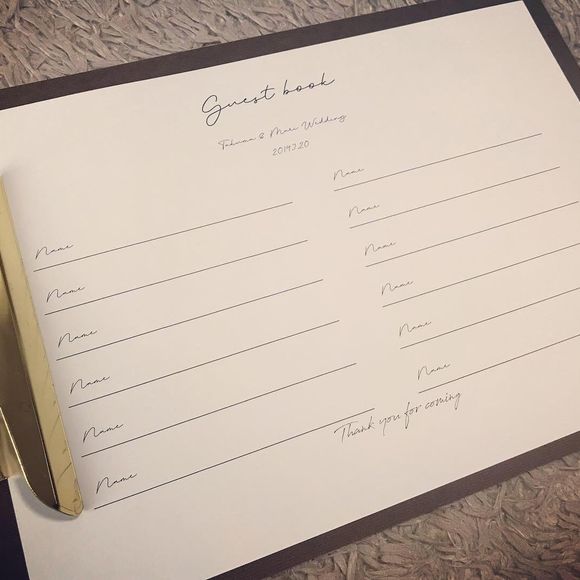 Guest book
Takuma & Mari Wedding
2019.1.20
Name
Name
Name
Name
Name
Name
Name
Name
Name
Name
Name
Name
Thank you for coming